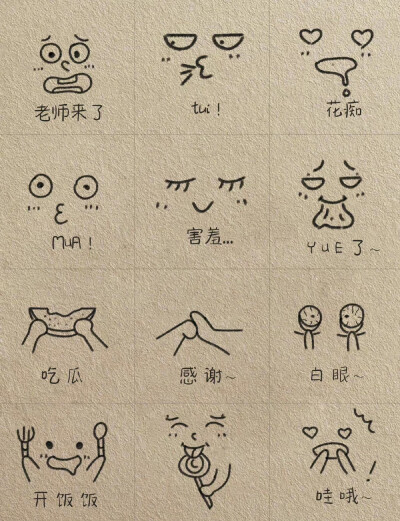 老师来了
tui!
花痴
MUA!
害羞...
YUE了~
吃瓜
感谢~
白眼~
开饭饭
哇哦~